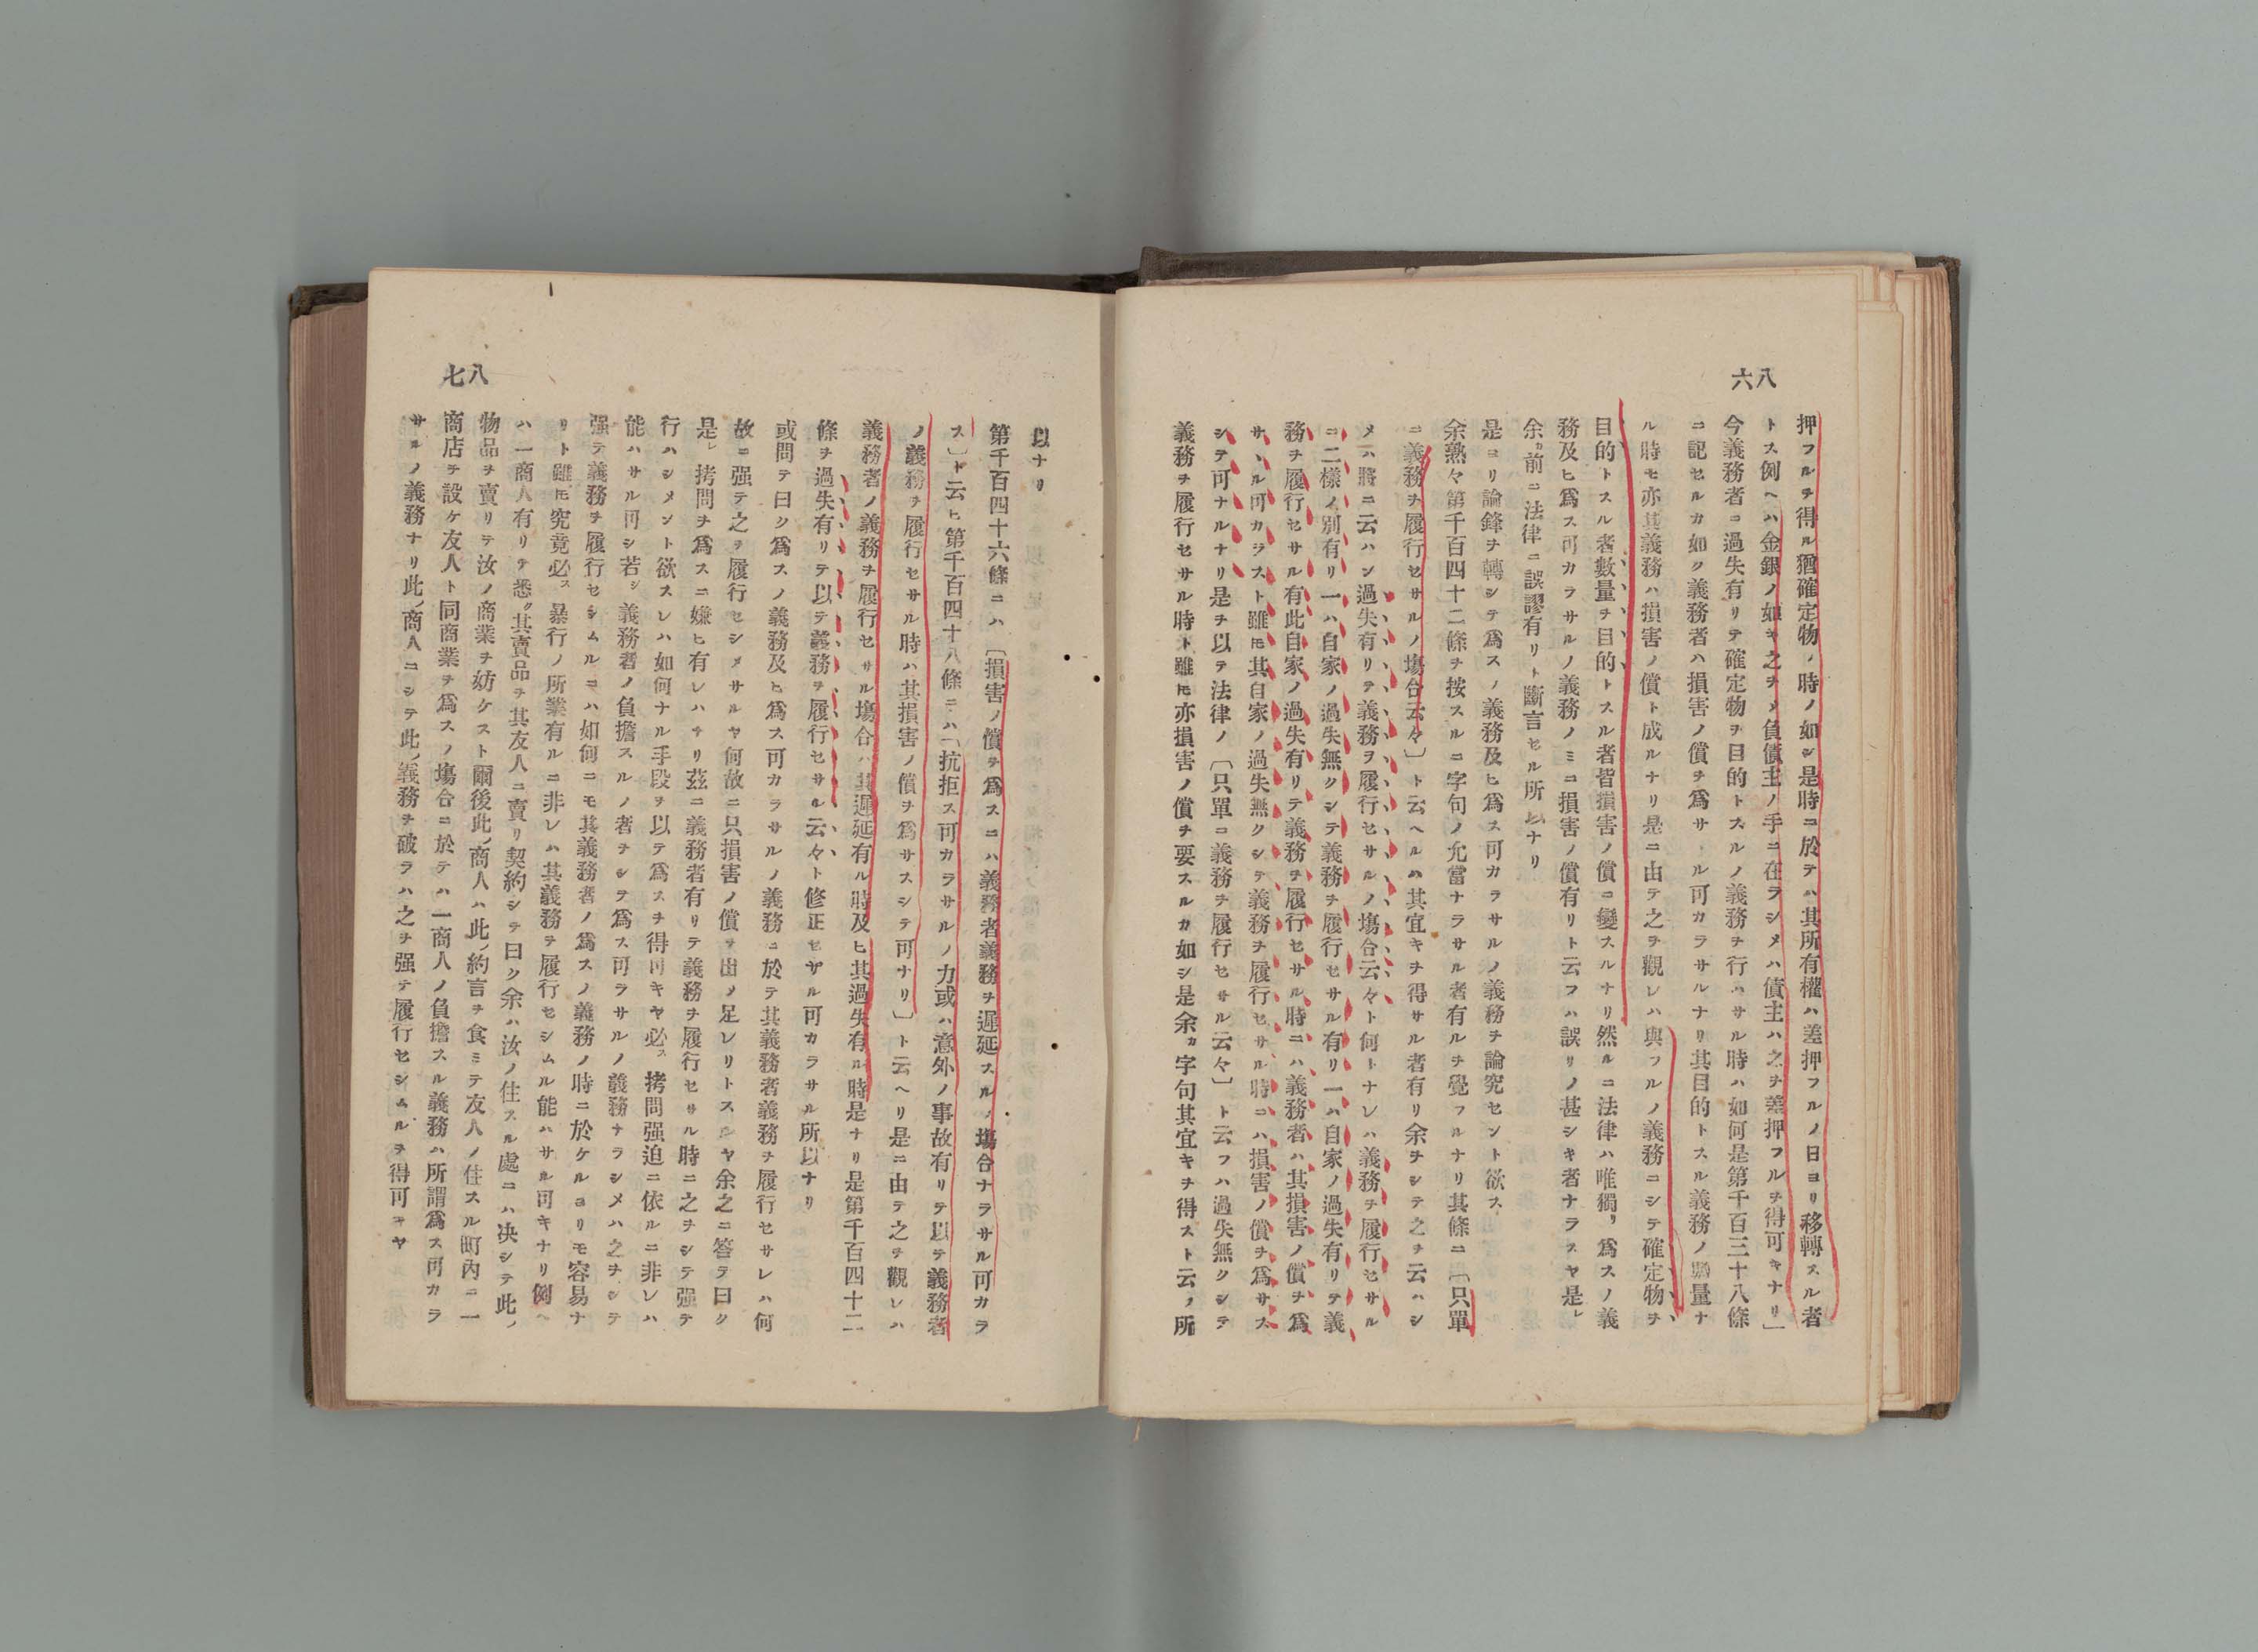 八六
押フルヲ得ル猶確定物ノ時ノ如シ是時ニ於テハ其所有權ハ差押フルノ日ヨリ移轉スル者
トス例ヘハ金銀ノ如キ之ヲメ負債主ノ手ニ在ラシメハ債主ハ之ヲ差押フルヲ得可キナリ」
今義務者ニ過失有リテ確定物ヲ目的トスルノ義務ヲ行ハサル時ハ如何是第千百三十八條
ニ記セルカ如ク義務者ハ損害ノ償ヲ爲サヽル可カラサルナリ其目的トスル義務ノ數量ナ
ル時モ亦其義務ハ損害ノ償ト成ルナリ是ニ由テ之ヲ觀レハ與フルノ義務ニシテ確定物ヲ
目的トスル者數量ヲ目的トスル者皆損害ノ償ニ變スルナリ然ルニ法律ハ唯獨リ爲スノ義
務及ヒ爲ス可カラサルノ義務ノミニ損害ノ償有リト云フハ誤リノ甚シキ者ナラスヤ是レ
余カ前ニ法律ニ誤謬有リト斷言セル所以ナリ
是ヨリ論鋒ヲ轉シテ爲スノ義務及ヒ爲ス可カラサルノ義務ヲ論究セント欲ス
余熟々第千百四十二條ヲ按スルニ字句ノ允當ナラサル者有ルヲ覺フルナリ其條ニ〔只單
ニ義務ヲ履行セサルノ塲合云々〕ト云ヘルハ其宜キヲ得サル者有リ余ヲシテ之ヲ云ハシ
メハ將ニ云ハン過失有リテ義務ヲ履行セサルノ塲合云々ト何トナレハ義務ヲ履行セサル
ニ二樣ノ別有リ一ハ自家ノ過失無クシテ義務ヲ履行セサル有リ一ハ自家ノ過失有リテ義
務ヲ履行セサル有此自家ノ過失有リテ義務ヲ履行セサル時ニハ義務者ハ其損害ノ償ヲ爲
サヽル可カラスト雖𪜈其自家ノ過失無クシテ義務ヲ履行セサル時ニハ損害ノ償ヲ爲サス
シテ可ナルナリ是ヲ以テ法律ノ〔只單ニ義務ヲ履行セサル云々〕ト云フハ過失無クシテ
義務ヲ履行セサル時ト雖𪜈亦損害ノ償ヲ要スルカ如シ是余カ字句其宜キヲ得スト云フ所
八七
以ナリ
第千百四十六條ニハ〔損害ノ償ヲ爲スニハ義務者義務ヲ遲延スルノ塲合ナラサル可カラ
ス〕ト云ヒ第千百四十八條ニハ「抗拒ス可カラサルノ力或ハ意外ノ事故有リテ以テ義務者
ノ義務ヲ履行セサル時ハ其損害ノ償ヲ爲サスシテ可ナリ〕ト云ヘリ是ニ由テ之ヲ觀レハ
義務者ノ義務ヲ履行セサル塲合ハ其遲延有ル時及ヒ其過失有ル時是ナリ是第千百四十二
條ヲ過失有リテ以テ義務ヲ履行セサル云々ト修正セサル可カラサル所以ナリ
或問テ曰ク爲スノ義務及ヒ爲ス可カラサルノ義務ニ於テ其義務者義務ヲ履行セサレハ何
故ニ强テ之ヲ履行セシメサルヤ何故ニ只損害ノ償ヲ出メ足レリトスルヤ余之ニ答テ曰ク
是レ拷問ヲ爲スニ嫌ヒ有レハナリ茲ニ義務者有リテ義務ヲ履行セサル時ニ之ヲシテ强テ
行ハシメント欲スレハ如何ナル手段ヲ以テ爲スヲ得可キヤ必ス拷問强迫ニ依ルニ非レハ
能ハサル可シ若シ義務者ノ負擔スルノ者ヲシテ爲ス可ラサルノ義務ナラシメハ之ヲシテ
强テ義務ヲ履行セシムルニハ如何ニモ其義務者ノ爲スノ義務ノ時ニ於ケルヨリモ容易ナ
リト雖𪜈究竟必ス暴行ノ所業有ルニ非レハ其義務ヲ履行セシムル能ハサル可キナリ例ヘ
ハ一商人有リテ悉ク其賣品ヲ其友人ニ賣リ契約シテ曰ク余ハ汝ノ住スル處ニハ决シテ此ノ
物品ヲ賣リテ汝ノ商業ヲ妨ケスト爾後此ノ商人ハ此ノ約言ヲ食ミテ友人ノ住スル町內ニ一
商店ヲ設ケ友人ト同商業ヲ爲スノ塲合ニ於テハ一商人ノ負擔スル義務ハ所謂爲ス可カラ
サルノ義務ナリ此ノ商人ニシテ此ノ義務ヲ破ラハ之ヲ强テ履行セシムルヲ得可キヤ